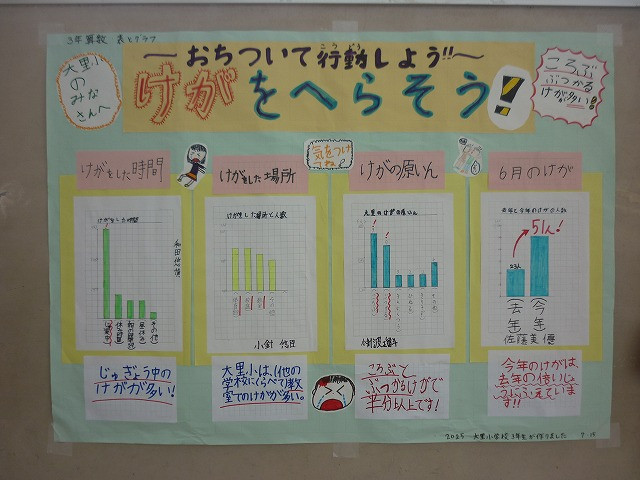 3年算数 表とグラフ
〜おちついて行動しよう!!〜
けがをへらそう!
大里小
のみな
さんへ
ころぶ
ぶつかる
けが多い!!
気をつけ
てね
けがをした時間
けがをした場所
けがの原いん
6月のけが
けがをした時間
けがをした場所と人数
大里のけがの原いん
去年と今年のけがの人数
その他
23人
51人!
(去年)
(今年)
佐藤美優
じゅぎょう中の
けがが多い!
大里小は、他の
学校にくらべて教
室でのけがが多い。
ころぶと
ぶつかるけがで
半分以上です!
今年のけがは、
去年の倍いじ
ょうにふえていま
す!!
2025 大里小学校3年生が作りました